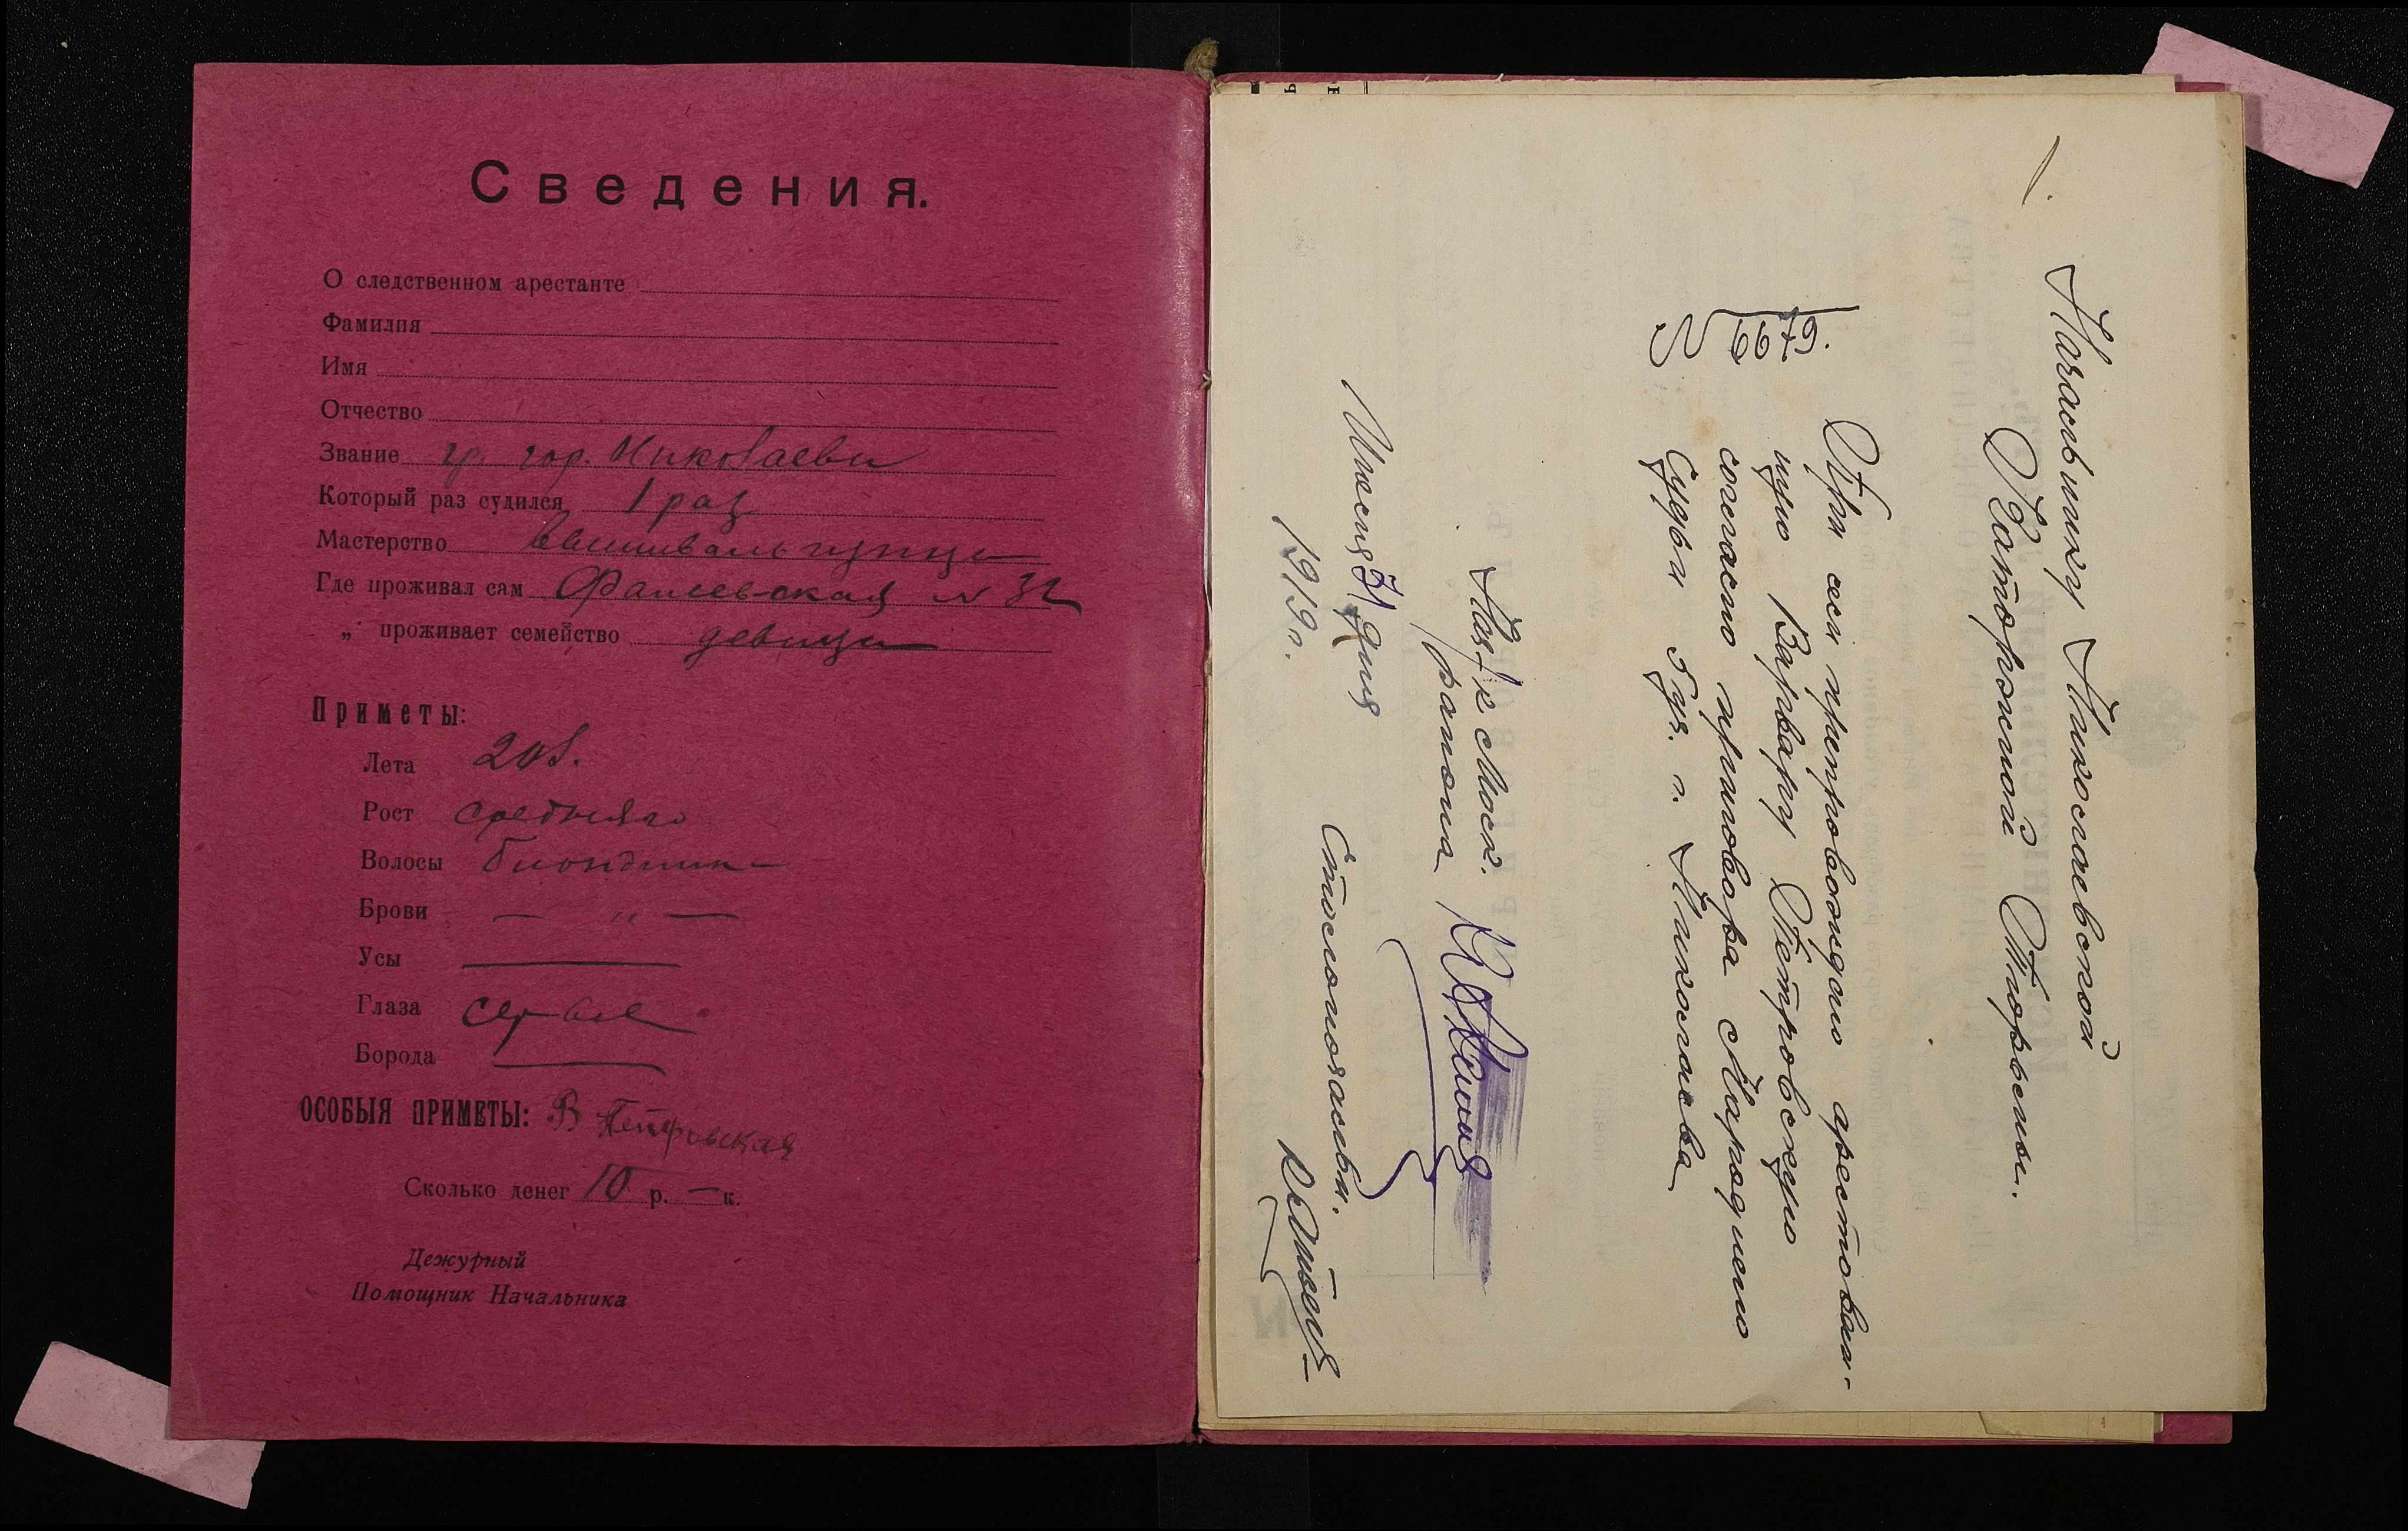 Сведения.
О следственном арестанте
Фамилия
Имя
Отчество
Звание гр. гор. Николаева
Который раз судился 1 раз
Мастерство вышивальщица
Где проживал сам Фалеевская № 32
„ проживает семейство девица
Приметы:
Лета 20 л.
Рост средняго
Волосы блондинка
Брови — „ —
Усы —
Глаза серые
Борода —
ОСОБЫЯ ПРИМЕТЫ: В Петровская
Сколько денег 10 р. — к.
Дежурный
Помощник Начальника
1.
Начальнику Николаевской
Каторжной Тюрьмы.
При сем препровождаю арестован-
ную Варвару Петровскую
согласно приговора Народного
Судьи 5 уч. г. Николаева
№ 6679.
Нач-к Моск.
района
Июня 31 дня
1919 г.
Столоначальн.